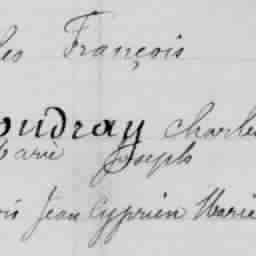 les François
oudray Charle
Marie Joseph
ois Jean Cyprien Marie